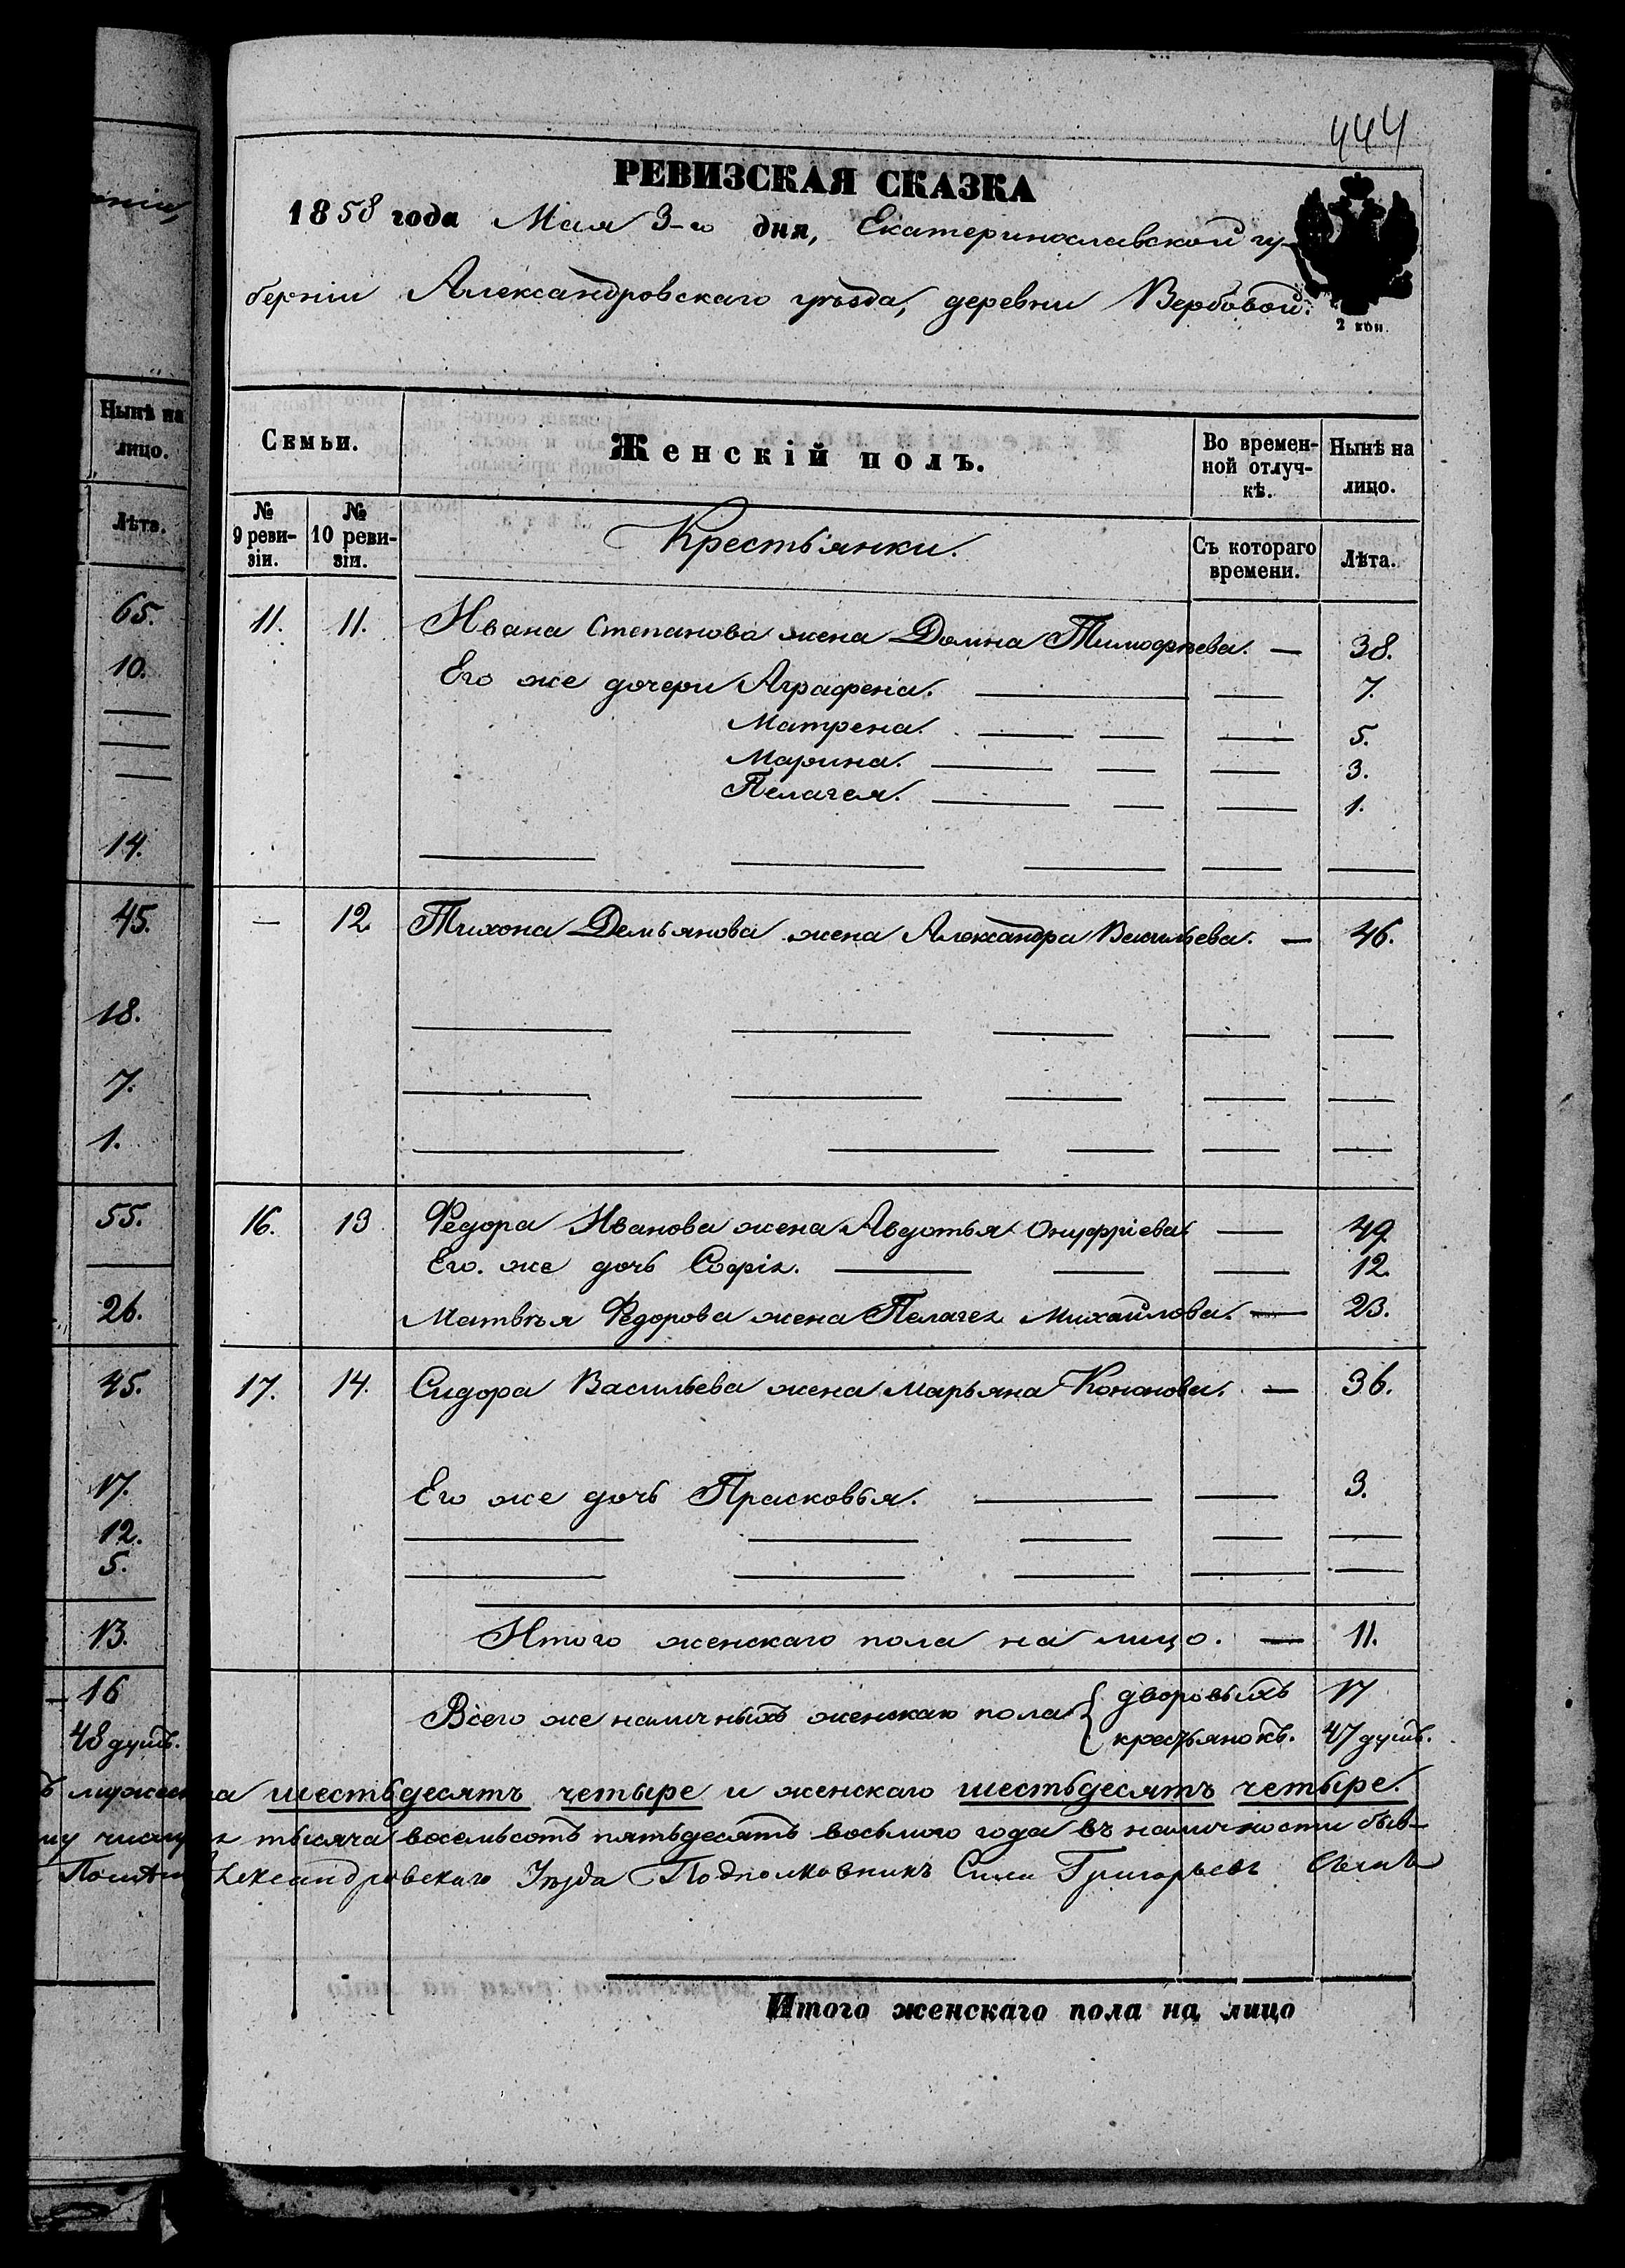 444
РЕВИЗСКАЯ СКАЗКА
1858 года Мая 3-го дня, Екатеринославской гу-
берніи Александровскаго уѣзда, деревни Вербовой.
2 коп.
Нынѣ на лицо.
Лѣта.
65.
10.
14.
45.
18.
7.
1.
55.
26.
45.
17.
12.
5.
13.
16
48 душъ.
Семьи.
Женскій полъ.
Во времен-
ной отлуч-
кѣ.
Нынѣ на
лицо.
№
9 реви-
зіи.
№
10 реви-
зіи.
Крестьянки.
Съ котораго
времени.
Лѣта.
11. 11. Ивана Степанова жена Домна Тимофѣева. — 38.
Его же дочери Аграфена. 7.
Матрена. 5.
Марина. 3.
Пелагея. 1.
— 12 Тихона Демьянова жена Александра Васильева. — 46.
16. 13 Федора Иванова жена Авдотья Онуфріева. — 49.
Его же дочь Софія. 12.
Матвѣя Федорова жена Пелагея Михайлова. — 23.
17. 14. Сидора Васильева жена Марьяна Кононова. — 36.
Его же дочь Прасковья. 3.
Итого женскаго пола на лицо. — 11.
Всего же наличныхъ женскаго пола { дворовыхъ 17
крестьянокъ. 47 душъ.
шестьдесятъ четыре и женскаго шестьдесятъ четыре.
тысяча восемьсотъ пятьдесятъ восьмого года въ наличности быв-
Александровскаго Уѣзда Подполковникъ Сила Григорьевъ
Итого женскаго пола на лицо